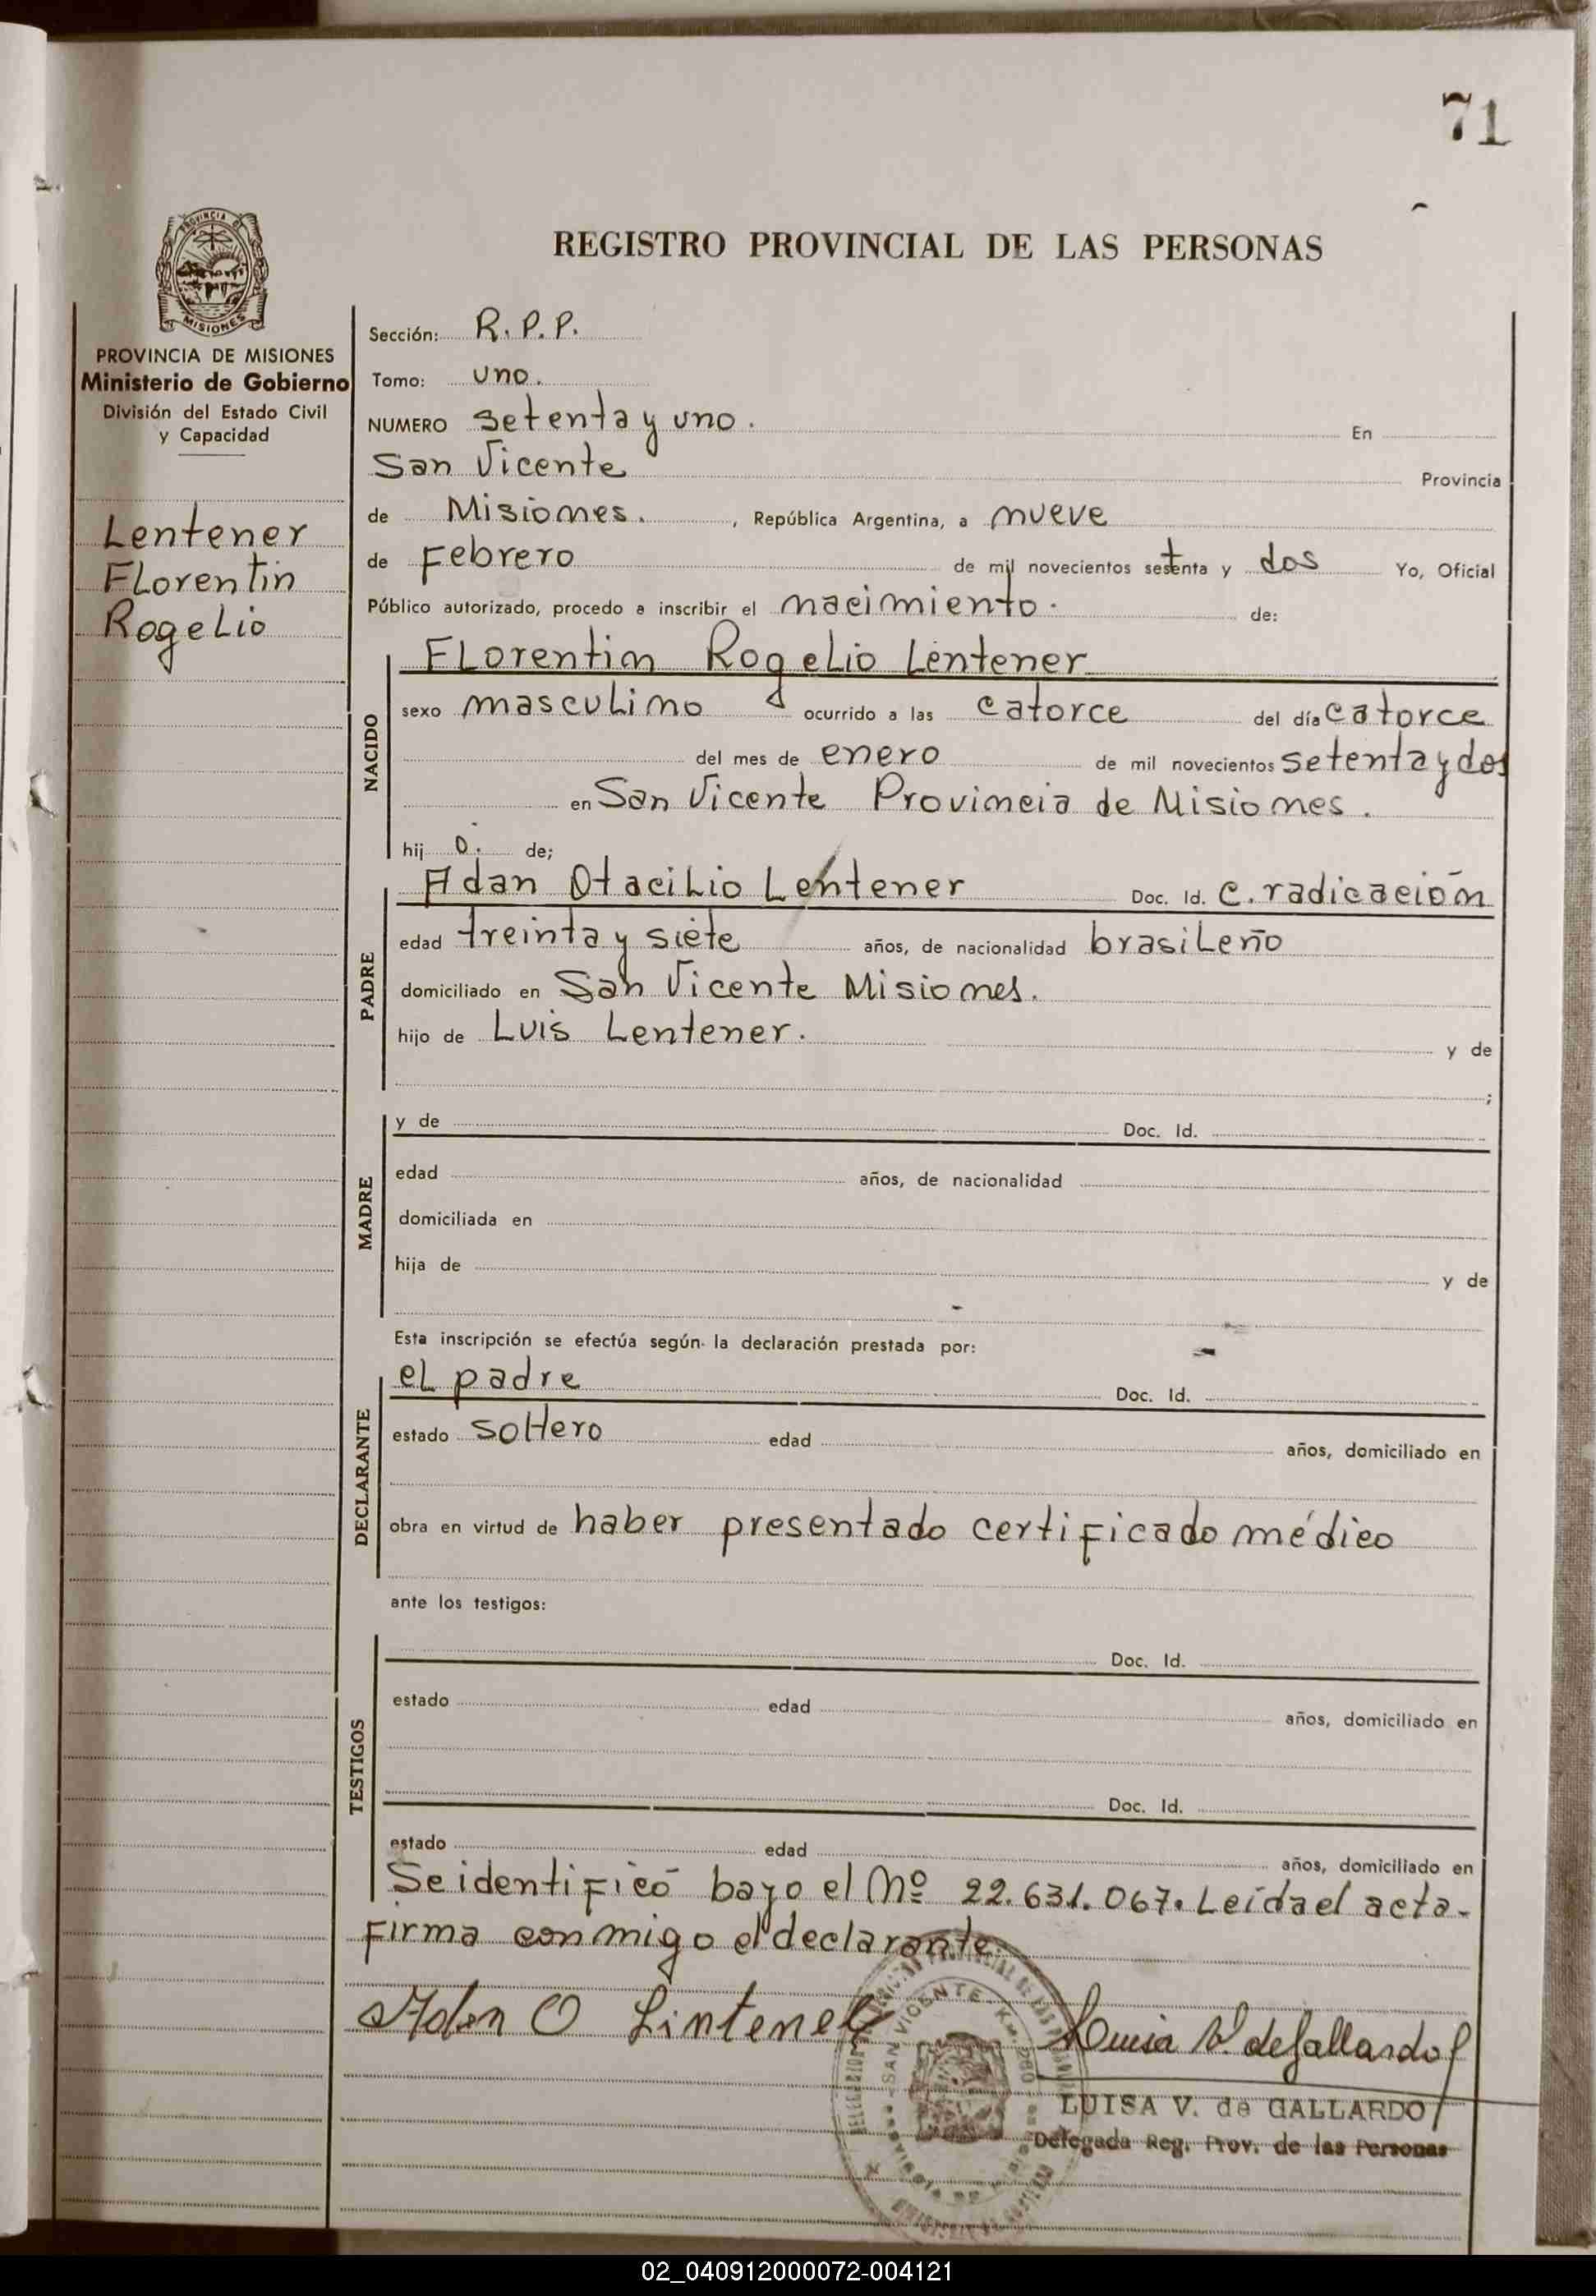 71
REGISTRO PROVINCIAL DE LAS PERSONAS
PROVINCIA DE
MISIONES
PROVINCIA DE MISIONES
Ministerio de Gobierno
División del Estado Civil
y Capacidad
Lentener
Florentin
Rogelio
Sección: R.P.P.
Tomo: uno.
NUMERO setenta y uno. En
San Vicente Provincia
de Misiones. , República Argentina, a nueve
de Febrero de mil novecientos setenta y dos Yo, Oficial
Público autorizado, procedo a inscribir el nacimiento. de:
NACIDO
Florentin Rogelio Lentener
sexo masculino ocurrido a las catorce del día catorce
del mes de enero de mil novecientos setenta y dos
en San Vicente Provincia de Misiones.
hij o. de;
PADRE
Adan Otacilio Lentener Doc. Id. C. radicación
edad treinta y siete años, de nacionalidad brasileño
domiciliado en San Vicente Misiones.
hijo de Luis Lentener. y de
;
MADRE
y de Doc. Id.
edad años, de nacionalidad
domiciliada en
hija de y de
Esta inscripción se efectúa según la declaración prestada por:
DECLARANTE
el padre Doc. Id.
estado soltero edad años, domiciliado en
obra en virtud de haber presentado certificado médico
ante los testigos:
TESTIGOS
Doc. Id.
estado edad años, domiciliado en
Doc. Id.
estado edad años, domiciliado en
Se identificó bajo el Nº 22.631.067. Leída el acta-
firma conmigo el declarante.
Adan O Lintener
Luisa V. de Gallardo
SAN VICENTE
LUISA V. de GALLARDO
Delegada Reg. Prov. de las Personas
02_040912000072-004121